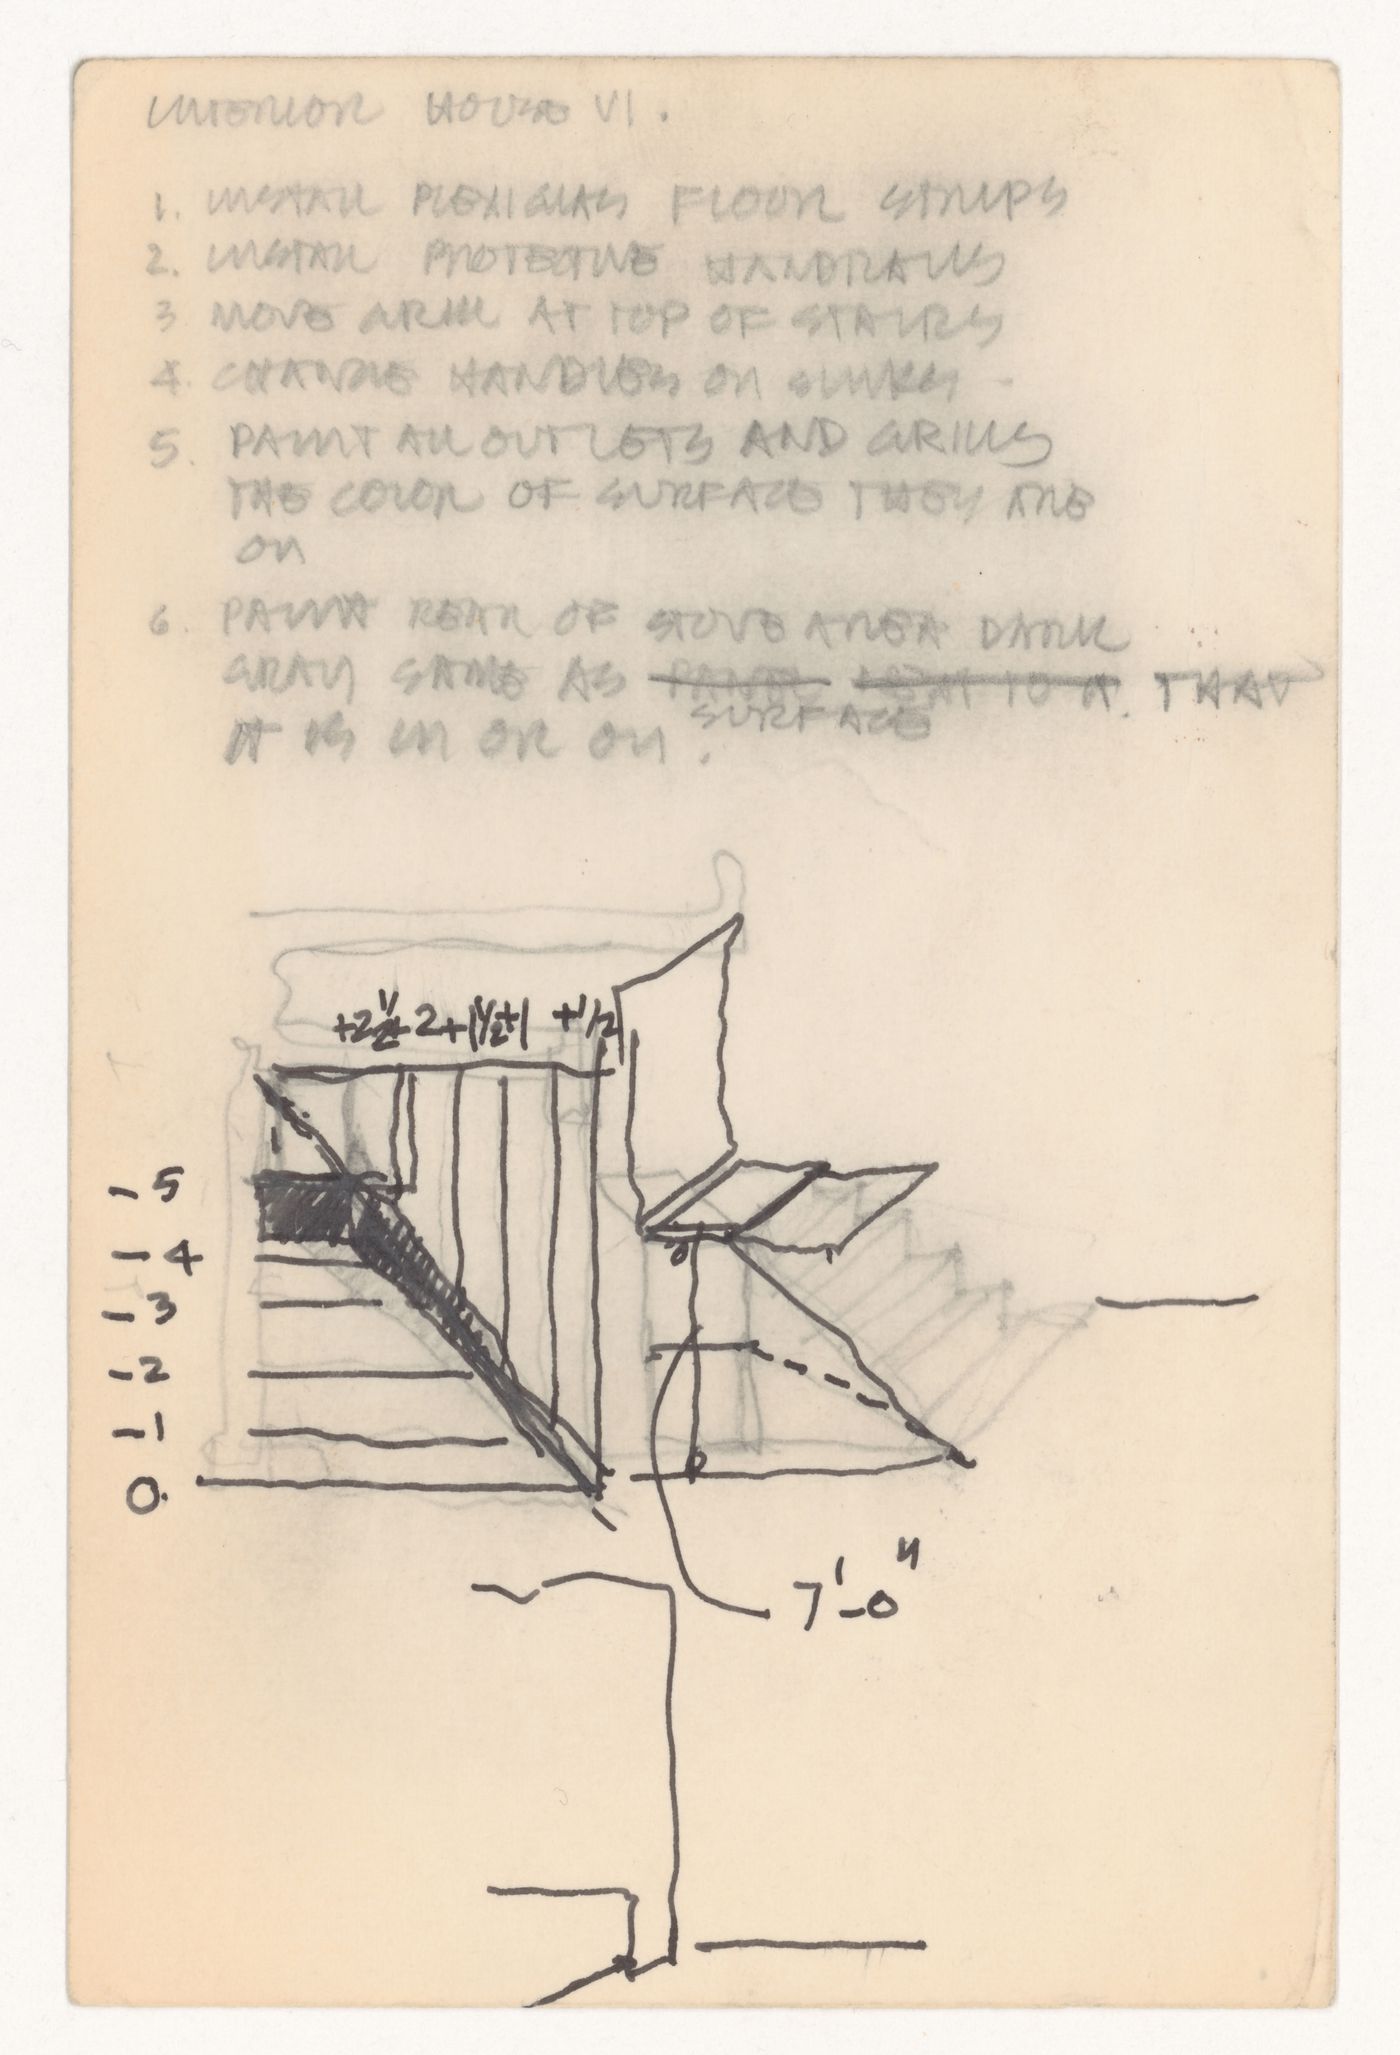 INTERIOR HOUSE VI.
1. INSTALL PLEXIGLAS FLOOR STRIPS
2. INSTALL PROTECTIVE HANDRAILS
3 MOVE GRILL AT TOP OF STAIRS
4. CHANGE HANDLES ON SINKS -
5. PAINT ALL OUTLETS AND GRILLS
THE COLOR OF SURFACE THEY ARE
ON
6. PAINT REAR OF STOVE AREA DARK
GRAY SAME AS PANEL NEXT TO IT. THAT
SURFACE
IT IS IN OR ON.
+2 1/2 +2 +1 1/2 +1 +1/2
-5
-4
-3
-2
-1
0.
7'-0"